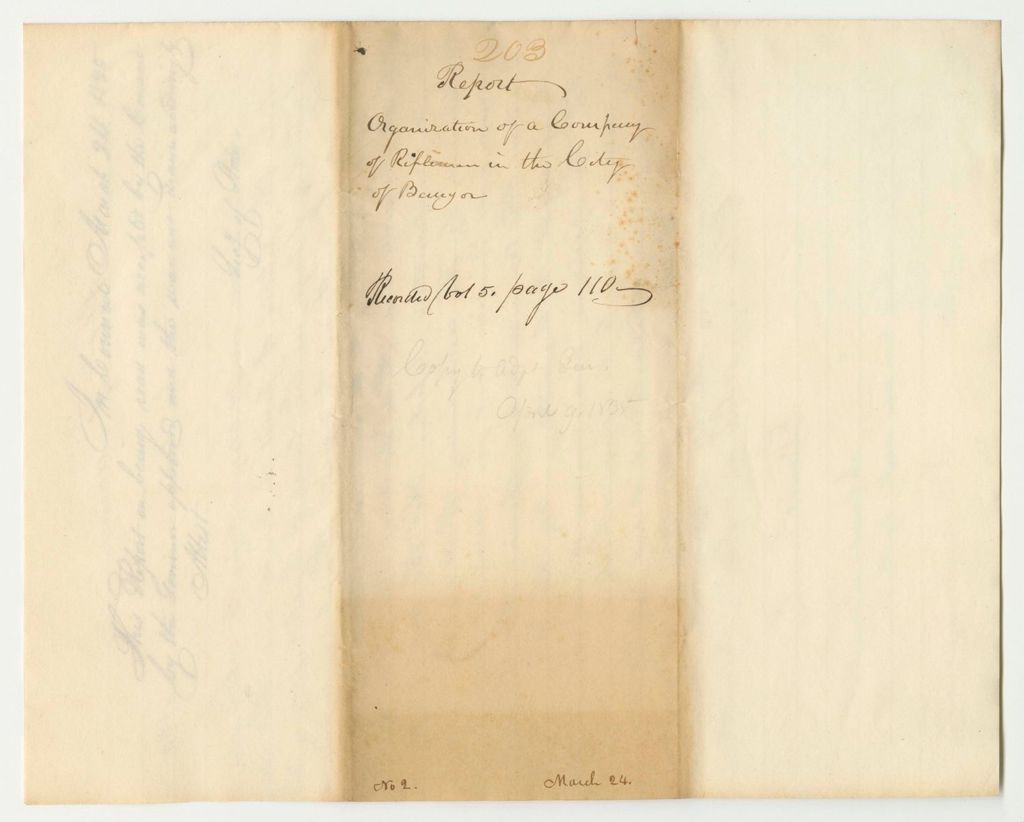 203
Report
Organization of a Company
of Riflemen in the City
of Bangor
Recorded Vol 5. page 110
Copy to Adjt. Gen.
April 9. 1835
No 2.
March 24.
In Council March 24 1835
This Report on being read was accepted by the Council
by the Governor approved
Attest